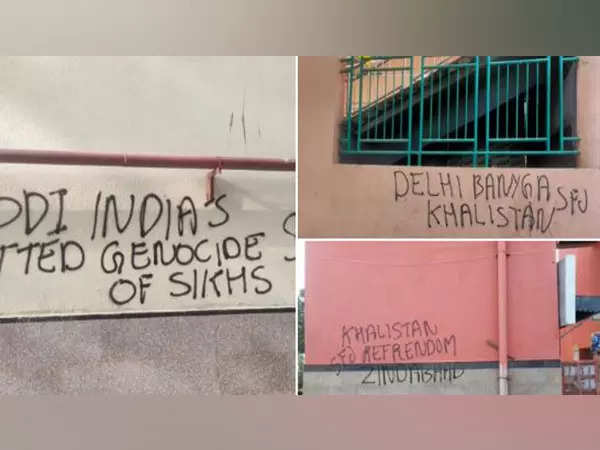 ODI INDIA'S
TTED GENOCIDE S
OF SIKHS
DELHI BANYGA SFJ
KHALISTAN
KHALISTAN
SFJ REFRENDOM
ZINDABAAD